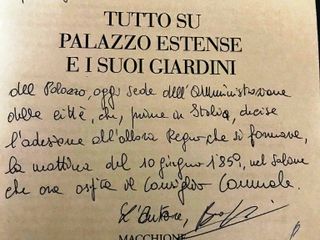 TUTTO SU
PALAZZO ESTENSE
E I SUOI GIARDINI
del Palazzo, oggi sede dell'Amministrazione
della città, che, prima in Italia, decise
l'adesione all'allora Regno che si formava,
la mattina del 10 giugno 1859, nel salone
che ora ospita il Consiglio Comunale.
L'Autore,
MACCHIONE